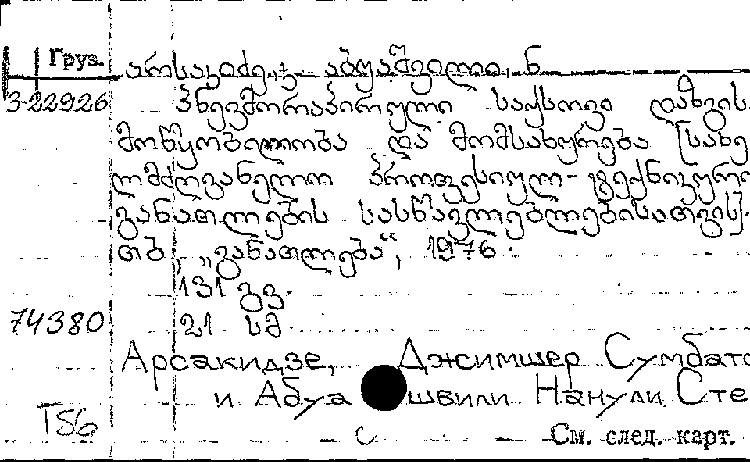 Груз. არსაკიძე, ჯ. აბუაშვილი, ნ.
3-22926 პნევმორაპირული საქსოვი დაზგის
მოწყობილობა და მომსახურება [სახე
ლმძღვანელო პროფესიულ-ტექნიკური
განათლების სასწავლებლებისათვის].
თბ., „განათლება“, 1976.
131 გვ.
74380 21 სმ
Арсакидзе, Джимшер Сумбато
и Абуашвили Нанули Сте
T56
См. след. карт.